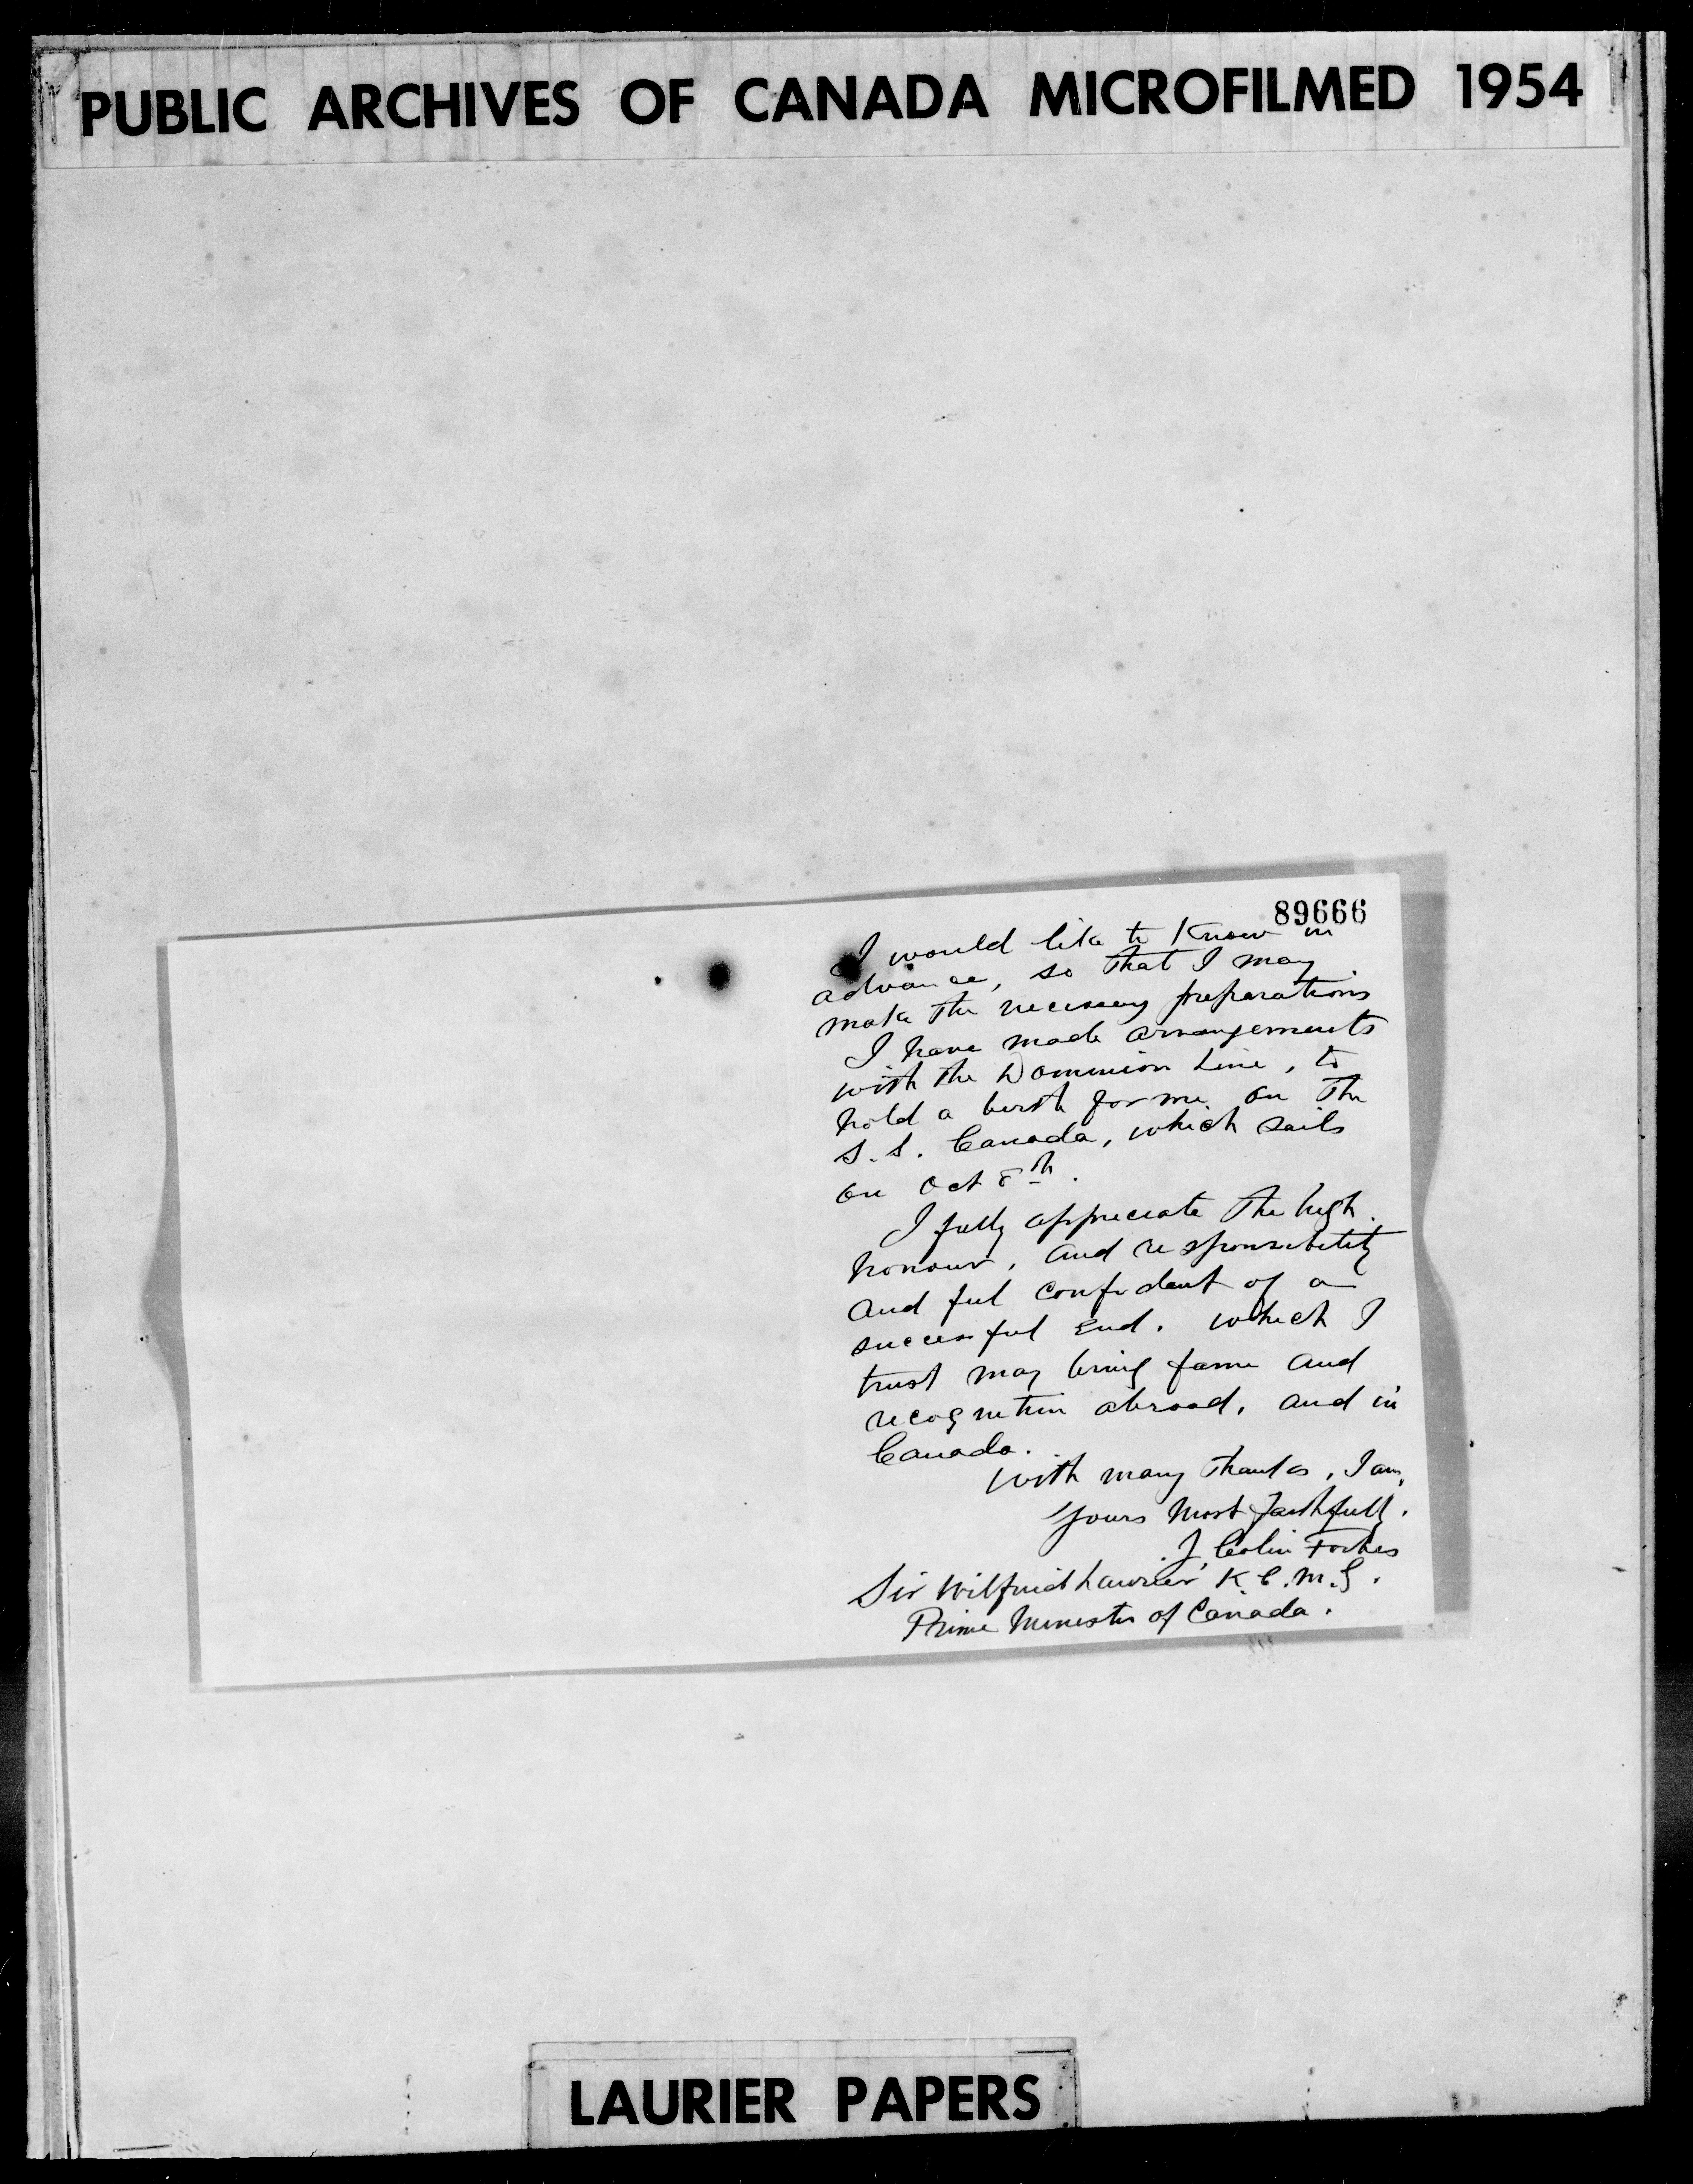 PUBLIC ARCHIVES OF CANADA MICROFILMED 1954
89666
I would like to Know in
advance, so that I may
make the necessary preparations
I have made arrangements
with the Dominion Line, to
hold a berth for me on the
S.S. Canada, which sails
on Oct 8th.
I fully appreciate the high
honour, and responsibility
and feel confident of a
successful End. which I
trust may bring fame and
recognition abroad, and in
Canada.
With many thanks, I am,
Yours Most Faithfully.
J. Colin Forbes
Sir Wilfrid Laurier K.C.M.G.
Prime Minister of Canada.
LAURIER PAPERS